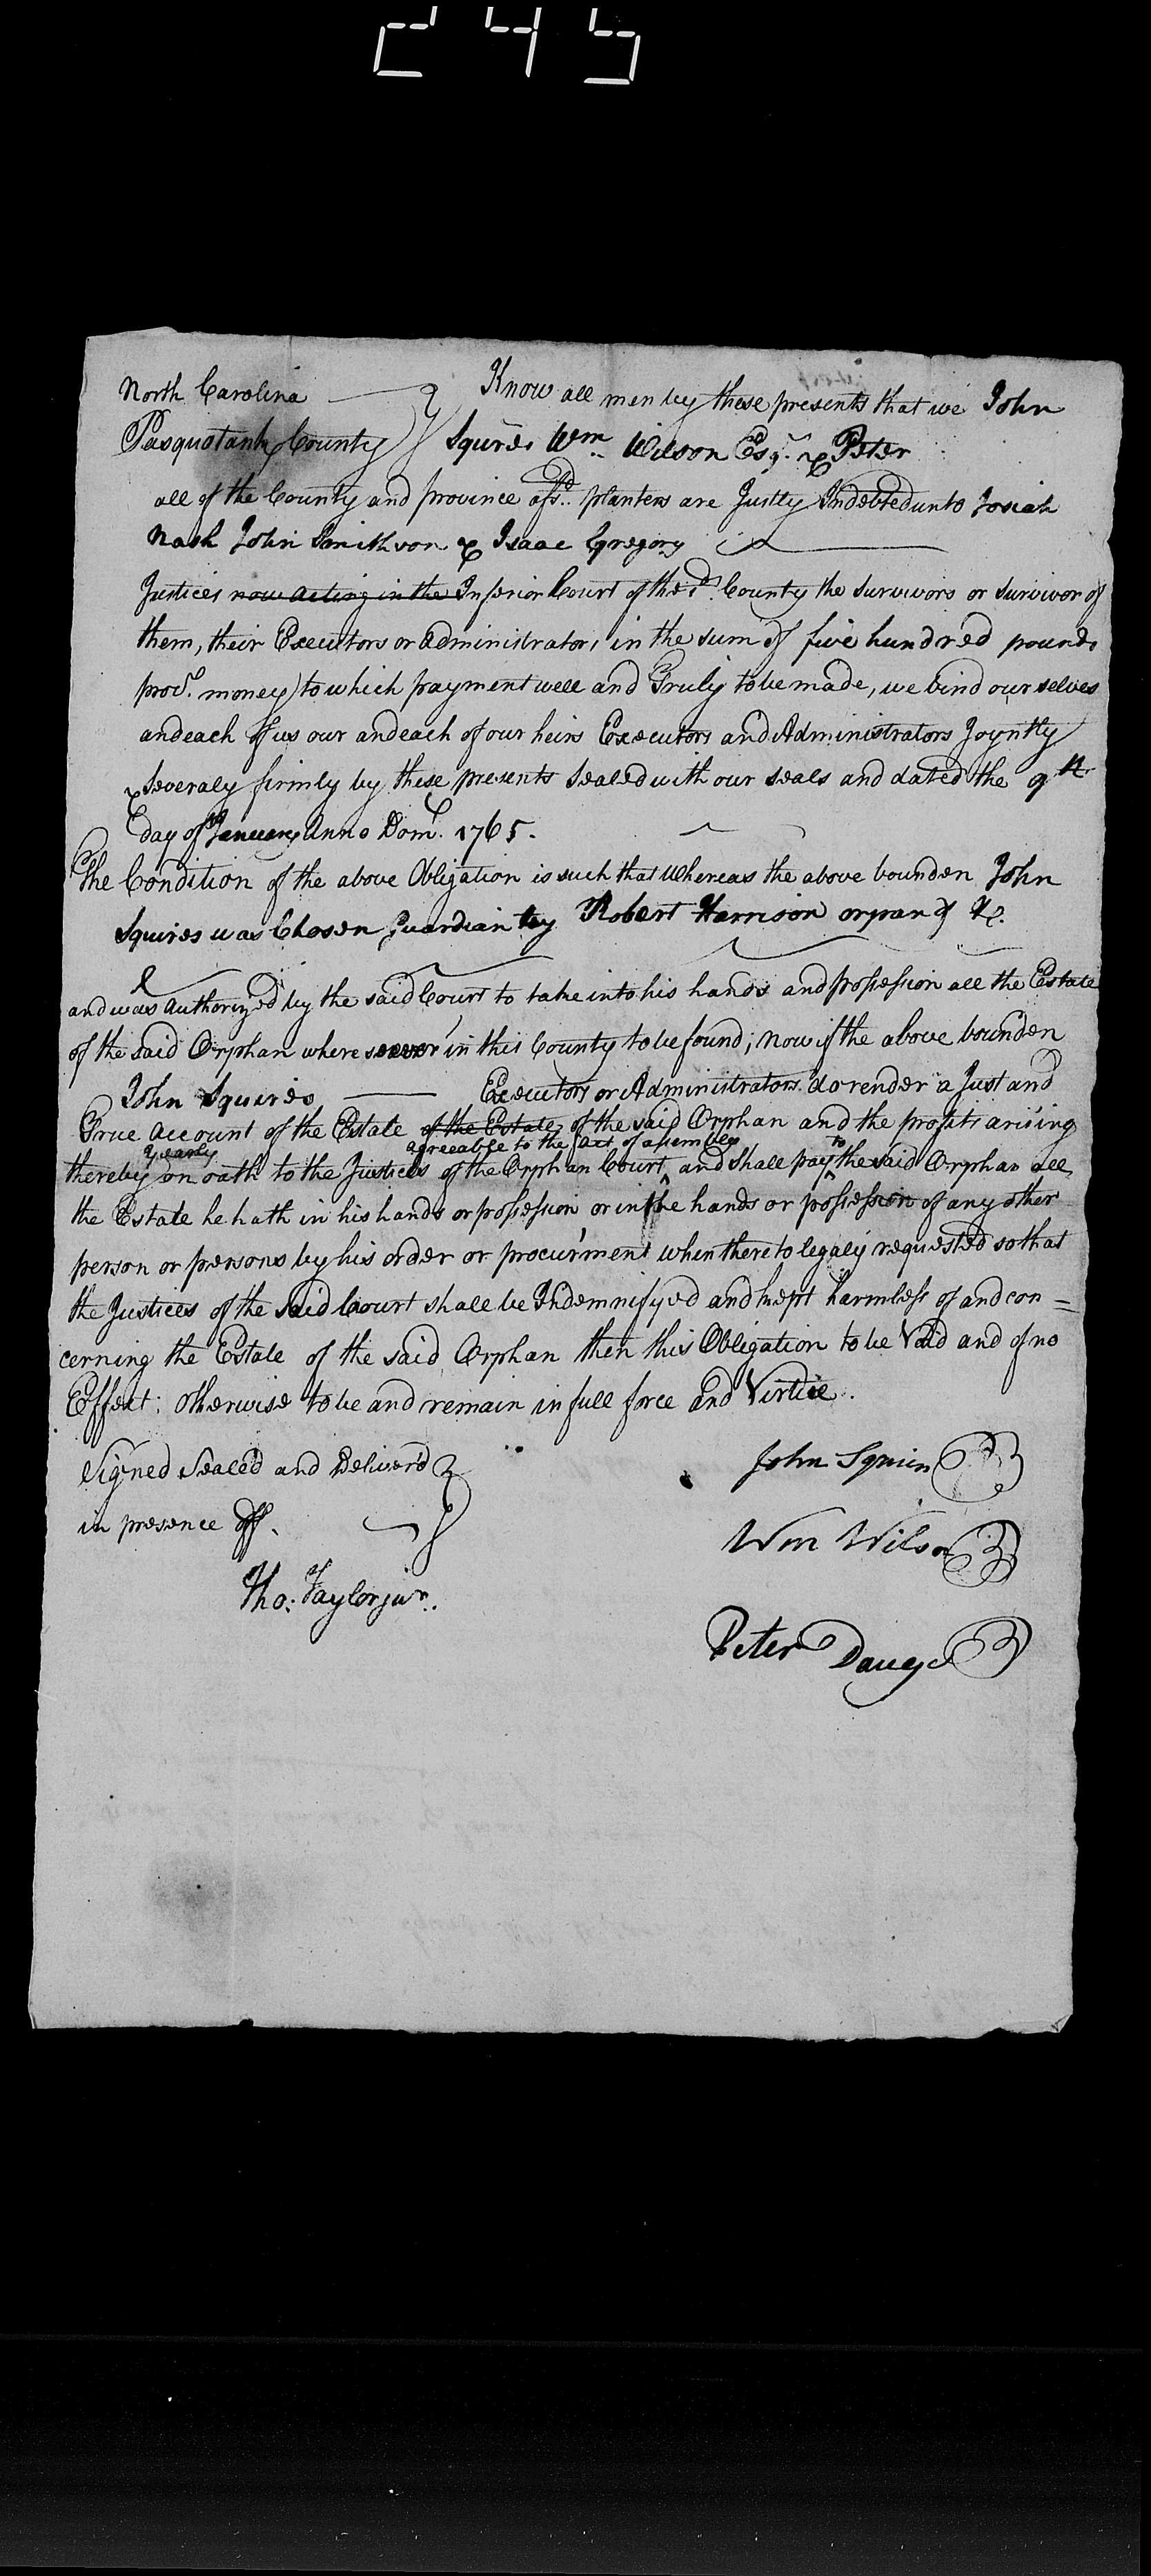 245
North Carolina Know all men by these presents that we John
Pasquotank County Squires Wm. Wilson Esqr. & Peter
all of the County and province afsd. planters are Justly Indebted unto Josiah
Nash John Smithson & Isaac Gregory
Justices now acting in the Inferior Court of the sd. County the survivors or survivor of
them, their Executors or Administrators in the sum of five hundred pounds
procl. money to which payment well and Truly to be made, we bind our selves
and each of us our and each of our heirs Executors and Administrators Joyntly
& severaly firmly by these presents Sealed with our seals and dated the 9th
day of January Anno Dom. 1765.
The Condition of the above Obligation is such that Whereas the above bounden John
Squires was Chosen Guardian by Robert Harrison orpan of &c.
and was Authorized by the said Court to take into his hands and possession all the Estate
of the said Orphan where soever in this County to be found; now if the above bounden
John Squires Executors or Administrators do render a Just and
True Account of the Estate of the Estate of the said Orphan and the profits arising
yearly agreeable to the act of assembly to
thereby on oath to the Justices of the Orphan Court and shall pay the said Orphan all
the Estate he hath in his hands or possession or in the hands or possession of any other
person or persons by his order or procur'ment when thereto legaly requested so that
the Justices of the said Court shall be Indemnifyed and kept harmless of and con=
cerning the Estate of the said Orphan then this Obligation to be Void and of no
Effect; Otherwise to be and remain in full force and Virtue.
Signed Sealed and Deliver'd John Squires
in presence off. Wm Wilson
Tho: Taylor junr.
Peter Dauge